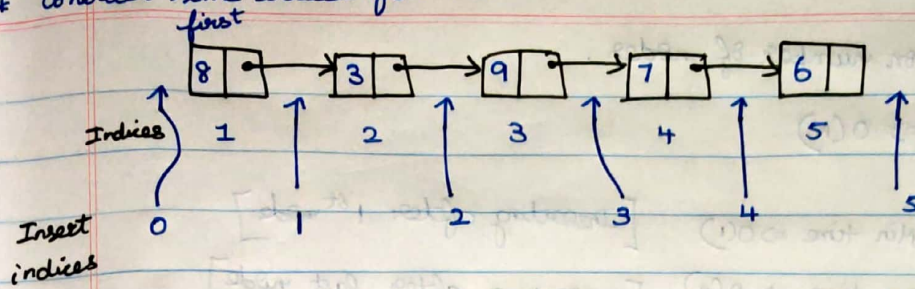 first
8 3 9 7 6
Indices 1 2 3 4 5
Insert indices 0 1 2 3 4 5